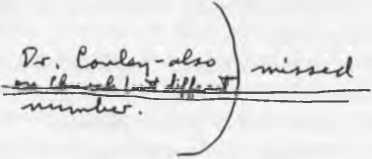 Dr. Conley - also
but different
number.
missed